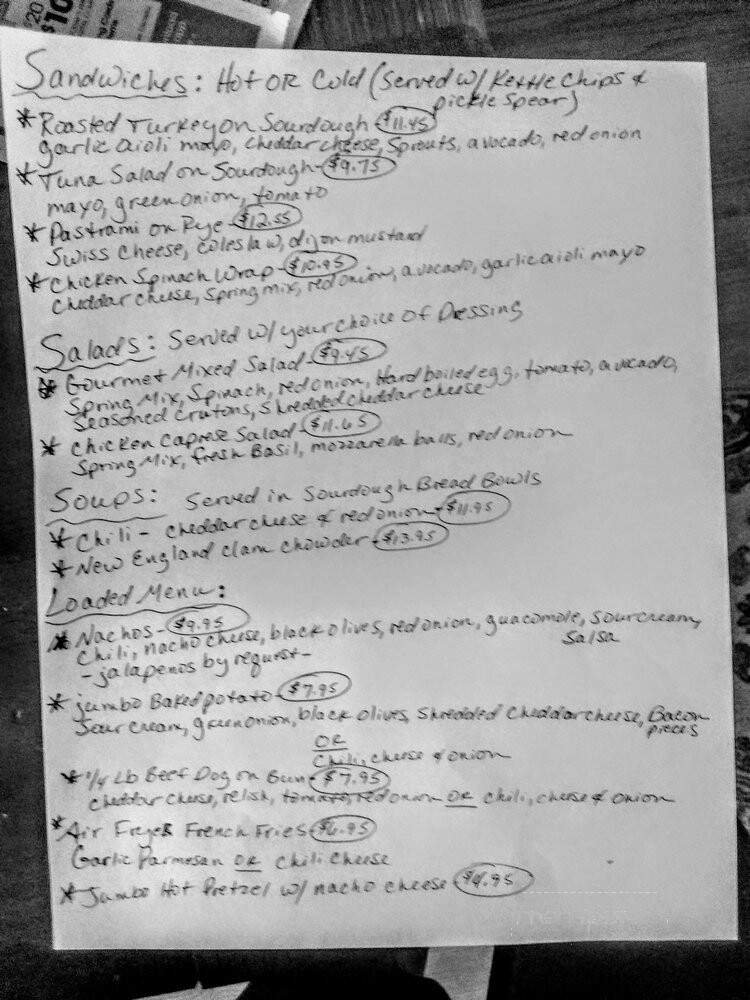 /20
$10
Sandwiches: Hot OR Cold (Served w/ Kettle Chips &
pickle Spear)
* Roasted Turkey on Sourdough - $11.45
garlic aioli mayo, cheddar cheese, Sprouts, avocado, red onion
* Tuna Salad on Sourdough - $9.75
mayo, green onion, tomato
* Pastrami on Rye - $12.55
Swiss cheese, coleslaw, dijon mustard
* Chicken Spinach Wrap - $10.95
cheddar cheese, spring mix, red onion, avocado, garlic aioli mayo
Salads: Served w/ your choice of Dressing
* Gourmet Mixed Salad - $9.45
Spring Mix, Spinach, red onion, Hard boiled egg, tomato, avocado,
Seasoned Crutons, Shredded cheddar cheese
* Chicken Caprese Salad - $11.65
Spring Mix, fresh Basil, mozzarella balls, red onion
Soups: Served in Sourdough Bread Bowls
* Chili - cheddar cheese & red onion - $11.95
* New England Clam Chowder - $13.95
Loaded Menu:
* Nachos - $9.95
Chili, nacho cheese, black olives, red onion, guacomole, sour cream,
salsa
- jalapenos by request -
* jumbo Baked potato - $7.95
Sour cream, green onion, black olives, Shredded Cheddar cheese, Bacon
pieces
OR
Chili, cheese & onion
* 1/4 Lb Beef Dog on Bun - $7.95
cheddar cheese, relish, tomato, red onion OR chili, cheese & onion
* Air Fryer French Fries $6.95
Garlic Parmesan OR chili cheese
* Jumbo Hot Pretzel w/ nacho cheese $4.95